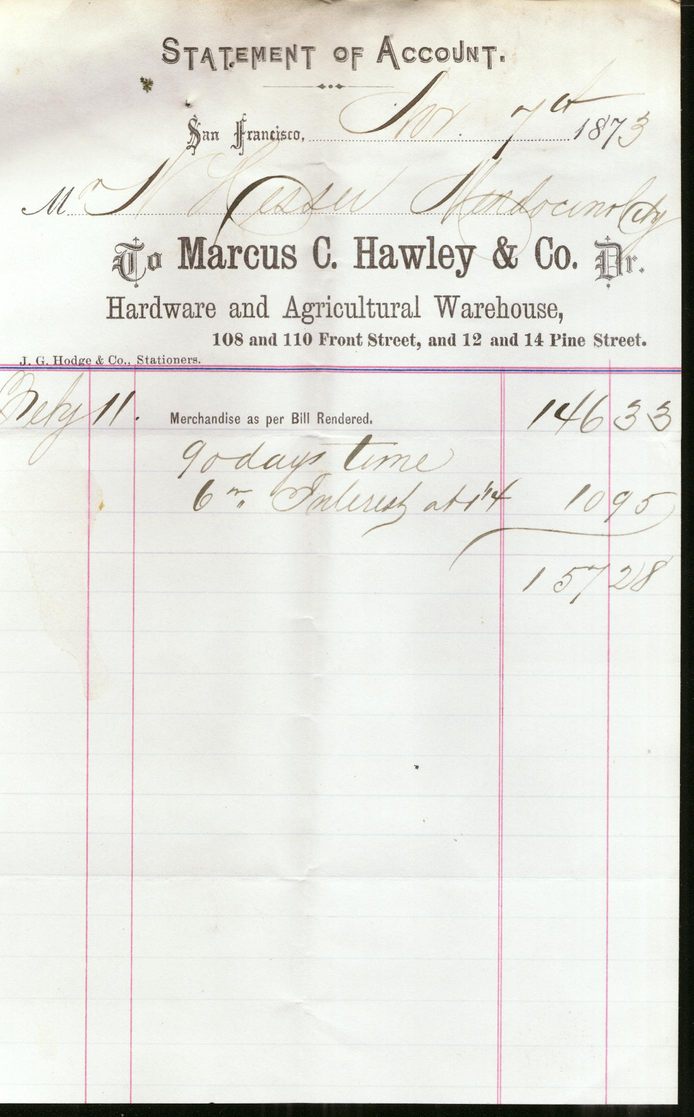 STATEMENT OF ACCOUNT.
San Francisco, Nov. 7th 1873
Mr W Hesser Mendocino City
To Marcus C. Hawley & Co. Dr.
Hardware and Agricultural Warehouse,
108 and 110 Front Street, and 12 and 14 Pine Street.
J. G. Hodge & Co., Stationers.
11. Merchandise as per Bill Rendered. 146 33
90 days time
6 m Interest at 1¼ 10 95
157 28